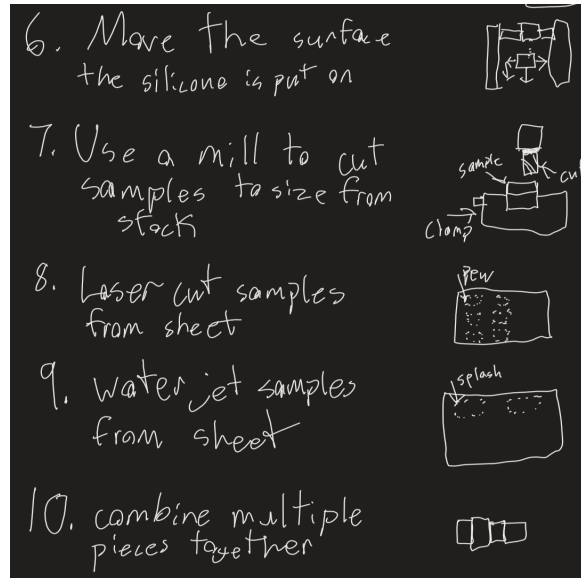 6. Move the surface
the silicone is put on
7. Use a mill to cut
samples to size from
stock
sample
cut
clamp
8. Laser cut samples
from sheet
pew
9. water jet samples
from sheet
splash
10. combine multiple
pieces together